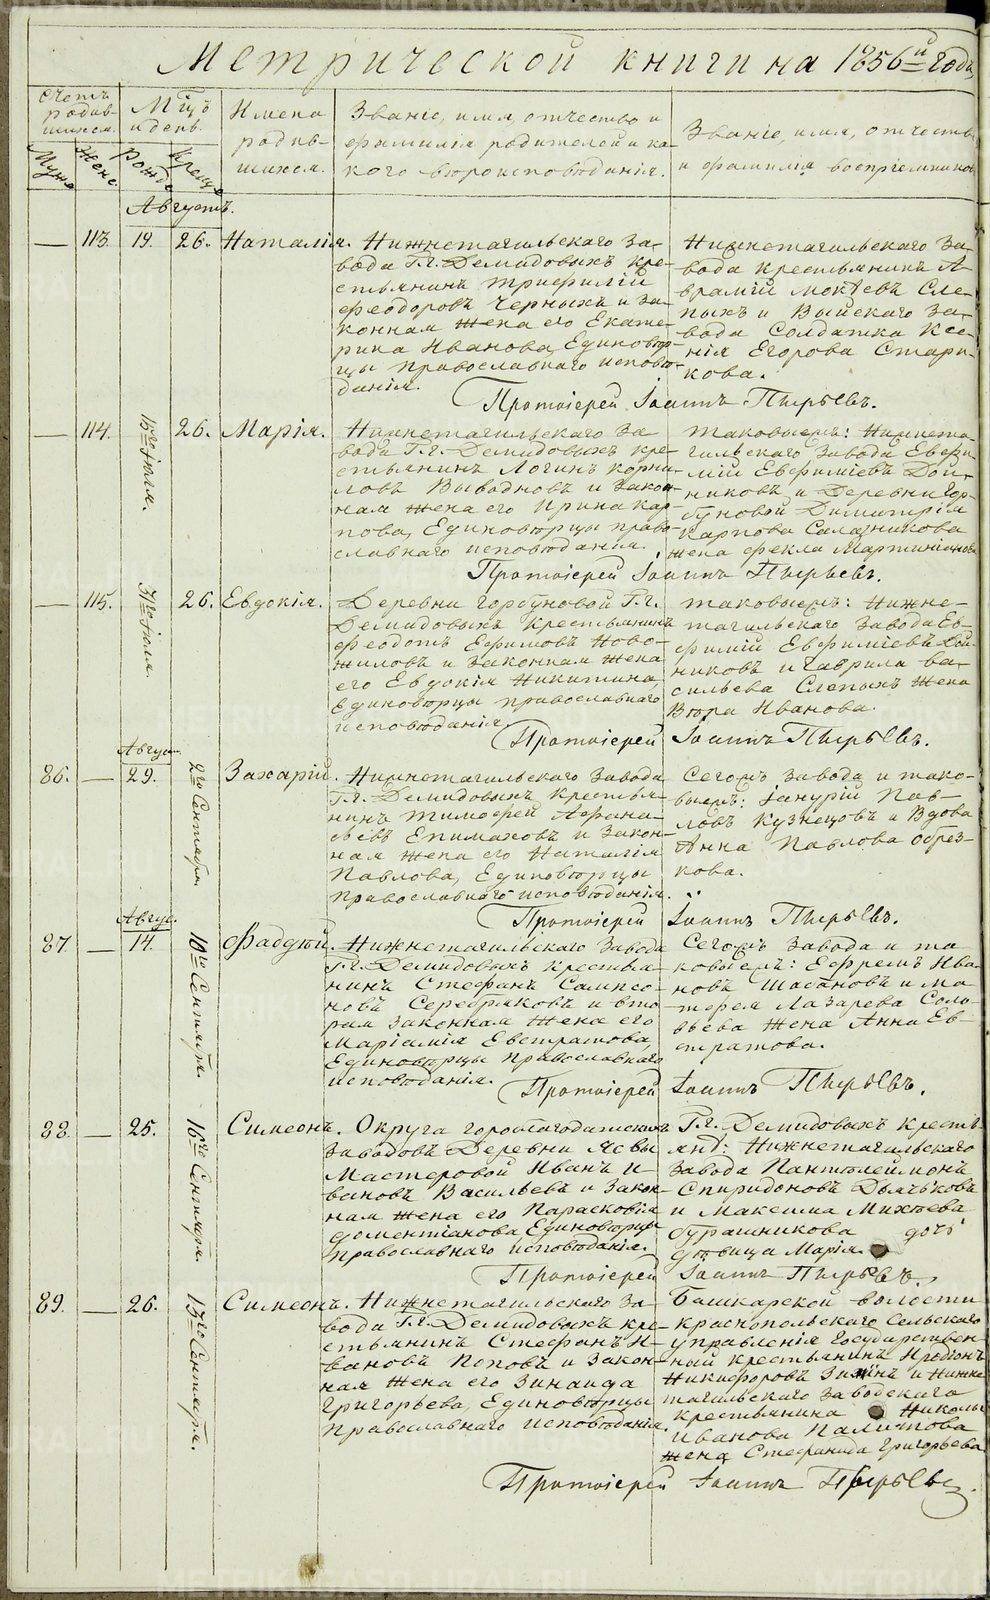 Метрической книги на 1856й годъ
Счетъ родив-
шихся.
Муж.
Женс.
Мцъ
и день.
Рожд.
Крещ.
Имена
родив-
шихся.
Званіе, имя, отчество и
фамилія родителей и ка-
кого вѣроисповѣданія.
Званіе, имя, отчество
и фамилія воспріемников
Августъ.
— 113. 19. 26. Наталія.
Нижнетагильскаго за-
вода Г.г. Демидовыхъ кре-
стьянинъ Трифилій
Феодоровъ Черныхъ и за-
конная жена его Екате-
рина Иванова, Единовѣр-
цы православнаго исповѣ-
данія.
Нижнетагильскаго за-
вода крестьянинъ А-
врамій Мокѣевъ Сле-
пыхъ и Выйскаго за-
вода Солдатка Ксе-
нія Егорова Стари-
кова.
Протоіерей Іоаннъ Пырьевъ.
— 114. 15го іюля. 26. Марія.
Нижнетагильскаго за
вода Г.г. Демидовыхъ кре-
стьянинъ Логинъ Корни-
ловъ Выводновъ и закон-
ная жена его Ирина Кар-
пова, Единовѣрцы право-
славнаго исповѣданія.
таковыежъ: Нижнета-
гильскаго завода Евфи-
мій Евфиміевъ Дой-
никовъ и Деревни Гор-
буновой Димитрія
Карпова Салазникова
жена Фекла Мартиніанова
Протоіерей Іоаннъ Пырьевъ.
— 115. 31го іюля 26. Евдокія.
Деревни Горбуновой Г.г.
Демидовыхъ крестьянинъ
Феодотъ Ефимовъ Ново-
жиловъ и законная жена
его Евдокія Никитина,
Единовѣрцы православнаго
исповѣданія.
таковыежъ: Нижне-
тагильскаго завода Ев-
фимій Евфиміевъ Дой-
никовъ и Гаврила Ва-
сильева Слепыхъ жена
Вѣра Иванова.
Протоіерей Іоаннъ Пырьевъ.
Август.
86. — 29. 2го Сентября. Захарій.
Нижнетагильскаго завода
Г.г. Демидовыхъ крестья-
нинъ Тимофей Афана-
сьевъ Епимаховъ и закон-
ная жена его Наталія
Павлова, Единовѣрцы
православнаго исповѣданія.
Сегожъ завода и тако-
выежъ: Іануурій Пав-
ловъ Кузнецовъ и вдова
Анна Павлова Обрез-
кова.
Протоіерей Іоаннъ Пырьевъ.
Авгус.
87. — 14. 10го Сентября. Фадѣй.
Нижнетагильскаго завода
Г.г. Демидовыхъ крестья-
нинъ Стефанъ Сампсо-
новъ Серебряковъ и вто-
рая законная жена его
Маріамія Евстратова,
Единовѣрцы православнаго
исповѣданія.
Сегожъ завода и та
ковыежъ: Ефремъ Ива-
новъ Шабановъ и Ма-
тфея Лазарева Соло-
вьева жена Анна Ев-
стратова.
Протоіерей Іоаннъ Пырьевъ.
88. — 25. 16го Сентября. Симеонъ.
Округа гороблагодатскихъ
заводовъ Деревни Ясвы
Мастеровой Иванъ И-
вановъ Васильевъ и закон-
ная жена его Парасковія
Доментіанова Единовѣрцы
православнаго исповѣданія.
Г.г. Демидовыхъ кресть-
яне: Нижнетагильскаго
завода Пантелеймонъ
Спиридоновъ Дьячковъ
и Максима Михѣева
Бурашникова дочь
дѣвица Марія.
Протоіерей Іоаннъ Пырьевъ.
89. — 26. 17го Сентября. Симеонъ.
Нижнетагильскаго за-
вода Г.г. Демидовыхъ кре-
стьянинъ Стефанъ И-
вановъ Поповъ и закон-
ная жена его Зинаида
Григорьева, Единовѣрцы
православнаго исповѣданія.
Башкарской волости
Краснопольскаго Сельскаго
управленія государствен-
ный крестьянинъ Иродіонъ
Никифоровъ Зиминъ и Нижне
тагильскаго заводскаго
крестьянина Николы
Иванова Палитова
жена Стефанида Григорьева
Протоіерей Іоаннъ Пырьевъ.